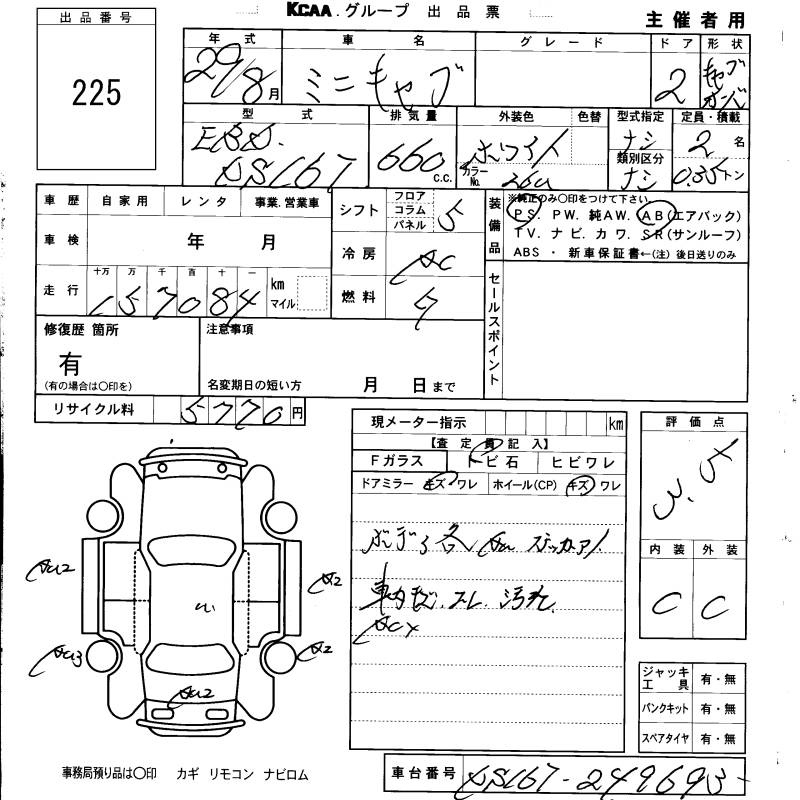 KCAA.グループ 出品票
主催者用
出品番号
225
年式 車名 グレード ドア 形状
29/8月 ミニキャブ 2 キャブオーバ
型式 排気量 外装色 色替 型式指定 定員・積載
EBD. DS16V 660 c.c. ホワイト カラーNo. 26U ナシ 2名
類別区分
ナシ 0.35トン
車歴 自家用 レンタ 事業.営業車
シフト フロア コラム パネル 5
装備品
※純正のみ○印をつけて下さい
PS. PW. 純AW. AB(エアバック)
TV. ナビ. カワ. SR(サンルーフ)
ABS ・ 新車保証書←(注) 後日送りのみ
車検 年 月
冷房 AC
走行 十万 万 千 百 十 一
157084 km マイル
燃料
セールスポイント
修復歴 箇所
有
(有の場合は○印を)
注意事項
名変期日の短い方 月 日まで
リサイクル料 5770円
現メーター指示 km
【査定員記入】
Fガラス トビ石 ヒビワレ
ドアミラー キズ ワレ ホイール(CP) キズ ワレ
ボデー各 ステッカーアト
車内キズ.スレ.汚れ
ACX
評価点
3.5
内装 外装
C C
A2
A2
ジャッキ工具 有・無
パンクキット 有・無
スペアタイヤ 有・無
事務局預り品は○印 カギ リモコン ナビロム
車台番号